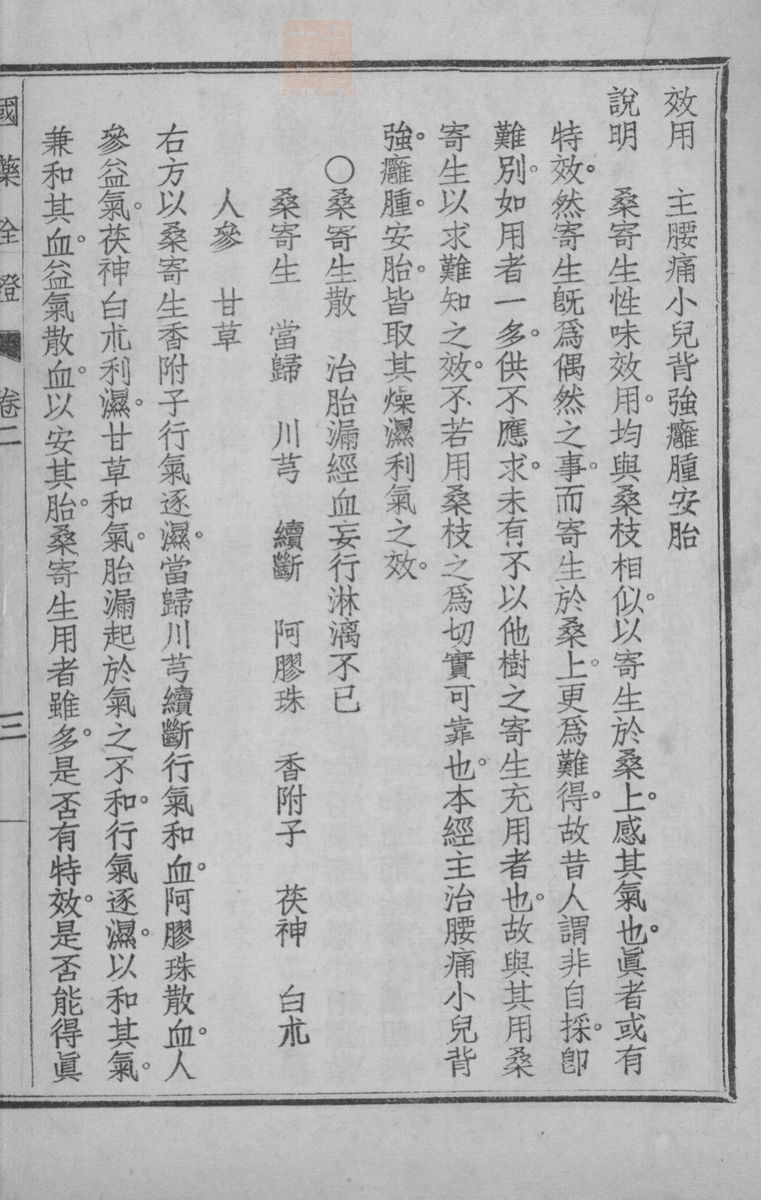 效用　主腰痛小兒背強癰腫安胎
說明　桑寄生性味效用。均與桑枝相似。以寄生於桑上。感其氣也。眞者或有
特效。然寄生旣爲偶然之事。而寄生於桑上。更爲難得。故昔人謂非自採。卽
難別。如用者一多。供不應求。未有不以他樹之寄生充用者也。故與其用桑
寄生以求難知之效。不若用桑枝之爲切實可靠也。本經主治腰痛小兒背
強。癰腫。安胎。皆取其燥濕利氣之效。
○桑寄生散　治胎漏經血妄行淋漓不已
桑寄生　當歸　川芎　續斷　阿膠珠　香附子　茯神　白朮
人參　甘草
右方以桑寄生香附子行氣逐濕。當歸川芎續斷行氣和血。阿膠珠散血。人
參益氣。茯神白朮利濕。甘草和氣。胎漏起於氣之不和。行氣逐濕。以和其氣。
兼和其血。益氣散血。以安其胎。桑寄生用者雖多。是否有特效。是否能得眞
國藥詮證　卷二　三